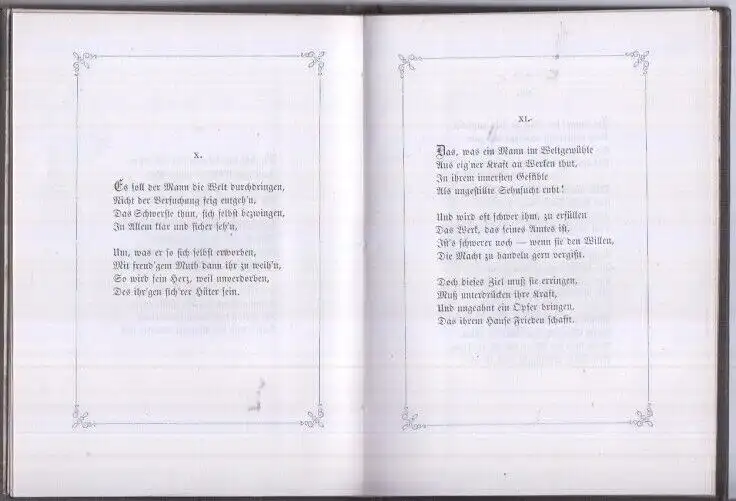 X.
Es soll der Mann die Welt durchdringen,
Nicht der Versuchung feig entgeh'n,
Das Schwerste thun, sich selbst bezwingen,
In Allem klar und sicher seh'n,
Um, was er so sich selbst erworben,
Mit freud'gem Muth dann ihr zu weih'n,
So wird sein Herz, weil unverdorben,
Des ihr'gen sich'rer Hüter sein.
XI.
Das, was ein Mann im Weltgewühle
Aus eig'ner Kraft an Werken thut,
In ihrem innersten Gefühle
Als ungestillte Sehnsucht ruht!
Und wird oft schwer ihm, zu erfüllen
Das Werk, das seines Amtes ist,
Ist's schwerer noch — wenn sie den Willen,
Die Macht zu handeln gern vergißt.
Doch dieses Ziel muß sie erringen,
Muß unterdrücken ihre Kraft,
Und ungeahnt ein Opfer bringen,
Das ihrem Hause Frieden schafft.